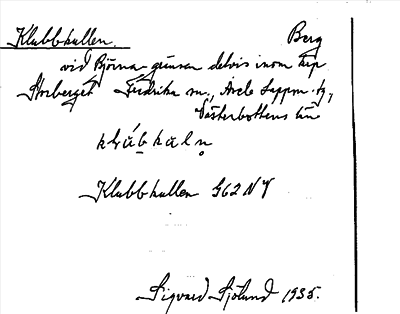 Klubbkullen. Berg
vid Björna-gränsen delvis inom krp
Storberget Fredrika sn., Åsele Lappm. tg,
Västerbottens län
Klubbkullen 962 NV
Sigvard Sjölund 1935.